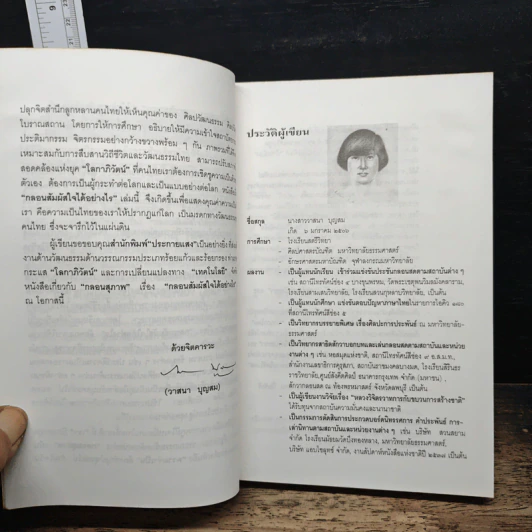 ปลุกจิตสำนึกลูกหลานคนไทยให้เห็นคุณค่าของ ศิลปวัฒนธรรม
โบราณสถาน โดยการให้การศึกษา อธิบายให้มีความเข้าใจ
ประติมากรรม จิตรกรรมอย่างกว้างขวางพร้อม ๆ กัน
เหมาะสมกับการสืบสานวิถีชีวิตและวัฒนธรรมไทย
สอดคล้องแห่งยุค "โลกาภิวัตน์" ที่คนไทยเราต้องการเชิดชูความเป็น
ตัวเอง ต้องการเป็นผู้กระทำต่อโลกและเป็นแบบอย่างต่อโลก
"กลอนสัมผัสใจได้อย่างไร" เล่มนี้ จึงเกิดขึ้นเพื่อแสดงคุณค่าความเป็น
เรา คือความเป็นไทยของเราให้ปรากฏแก่โลก เป็นมรดกทางวัฒนธรรม
คนไทย ซึ่งจะจารึกไว้ในโลก
ผู้เขียนขอขอบคุณสำนักพิมพ์"ประกายแสง"เป็นอย่างยิ่ง
งานด้านวัฒนธรรมด้านวรรณกรรมประเภทร้อยแก้วและร้อยกรอง
กระแส "โลกาภิวัตน์" และการเปลี่ยนแปลงทาง "เทคโนโลยี"
หนังสือเกี่ยวกับ "กลอนสุภาพ" เรื่อง "กลอนสัมผัสใจได้อย่างไร"
ณ โอกาสนี้
ด้วยจิตคารวะ
(วาสนา บุญสม)
ประวัติผู้เขียน
ชื่อสกุล นางสาววาสนา บุญสม
เกิด ๖ มกราคม ๒๕๐๐
การศึกษา โรงเรียนสตรีวิทยา
- ศิลปศาสตรบัณฑิต มหาวิทยาลัยธรรมศาสตร์
- อักษรศาสตรมหาบัณฑิต จุฬาลงกรณ์มหาวิทยาลัย
ผลงาน - เป็นผู้แทนนักเรียน เข้าร่วมแข่งขันประชันกลอนสดตามสถาบันต่าง ๆ
เช่น สถานีโทรทัศน์ช่อง ๔ บางขุนพรหม, วัดพระเชตุพนวิมลมังคลาราม,
โรงเรียนสวนกุหลาบวิทยาลัย, เป็นต้น
- เป็นผู้แทนนักศึกษา แข่งขันตอบปัญหาภาษาไทยในรายการ
ที่สถานีโทรทัศน์ช่อง ๕
- เป็นวิทยากรบรรยายพิเศษ เรื่องศิลปะการประพันธ์ ณ มหาวิทยาลัย-
ธรรมศาสตร์
- เป็นวิทยากรสาธิตสักวาบอกบทและเล่นกลอนสดตามสถาบันและหน่วย
งานต่าง ๆ เช่น หอสมุดแห่งชาติ, สถานีโทรทัศน์สีช่อง ๙ อ.ส.ม.ท.,
สำนักงานเลขาธิการคุรุสภา,
ราชวิทยาลัย,ศูนย์สังคีตศิลป์ ธนาคารกรุงเทพ จำกัด (มหาชน) ,
สักวากลอนสด ณ ท้องพรหมาสตร์ จังหวัดลพบุรี เป็นต้น
- เป็นผู้เขียนงานวิจัยเรื่อง "หลวงวิจิตรวาทการกับขบวนการสร้างชาติ"
ได้รับทุนจากสถาบันความมั่นคงและนานาชาติ
- เป็นกรรมการตัดสินการประกวดบอร์ดนิทรรศการ คำประพันธ์ การ-
เล่านิทานตามสถาบันและหน่วยงานต่าง ๆ เช่น บริษัท สวนสยาม
จำกัด มหาวิทยาลัยธรรมศาสตร์,
บริษัท จำกัด, งานสัปดาห์หนังสือแห่งชาติปี ๒๕๓๗ เป็นต้น